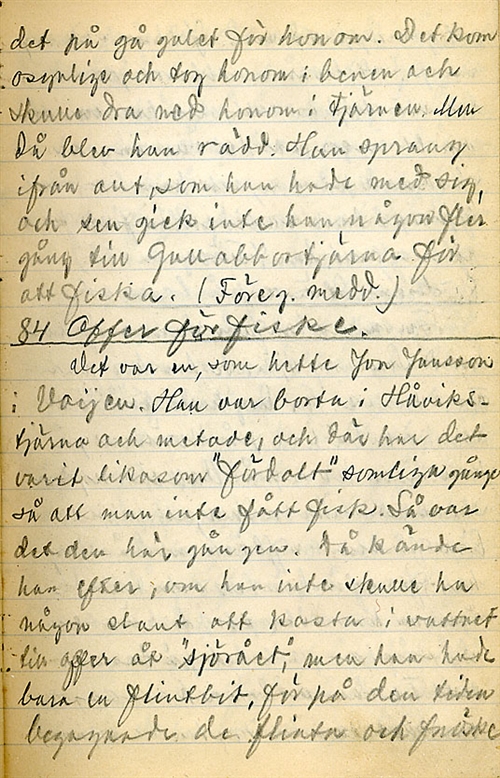 det på gå galet för honom. Det kom
osynlige och tog honom i benen och
skulle dra ned honom i tjärnen. Men
Då blev han rädd. Han sprang
ifrån allt, som han hade med sig,
och sen gick inte han någon fler
gång till Gullabbortjärna för
att fiska. (Föreg. medd.)
84 Offer för fiske.
Det var en, som hette Jon Jansson
i Vaijen. Han var borta i Håviks-
tjärna och metade, och där har det
varit likasom "fördolt" somliga gånger
så att man inte fått fisk. Så var
det den här gången. Då kände
han efter, om han inte skulle ha
någon slant att kasta i vattnet
till offer åt "sjörået", men han hade
bara en flintbit, för på den tiden
begagnade de flinta och fnöske